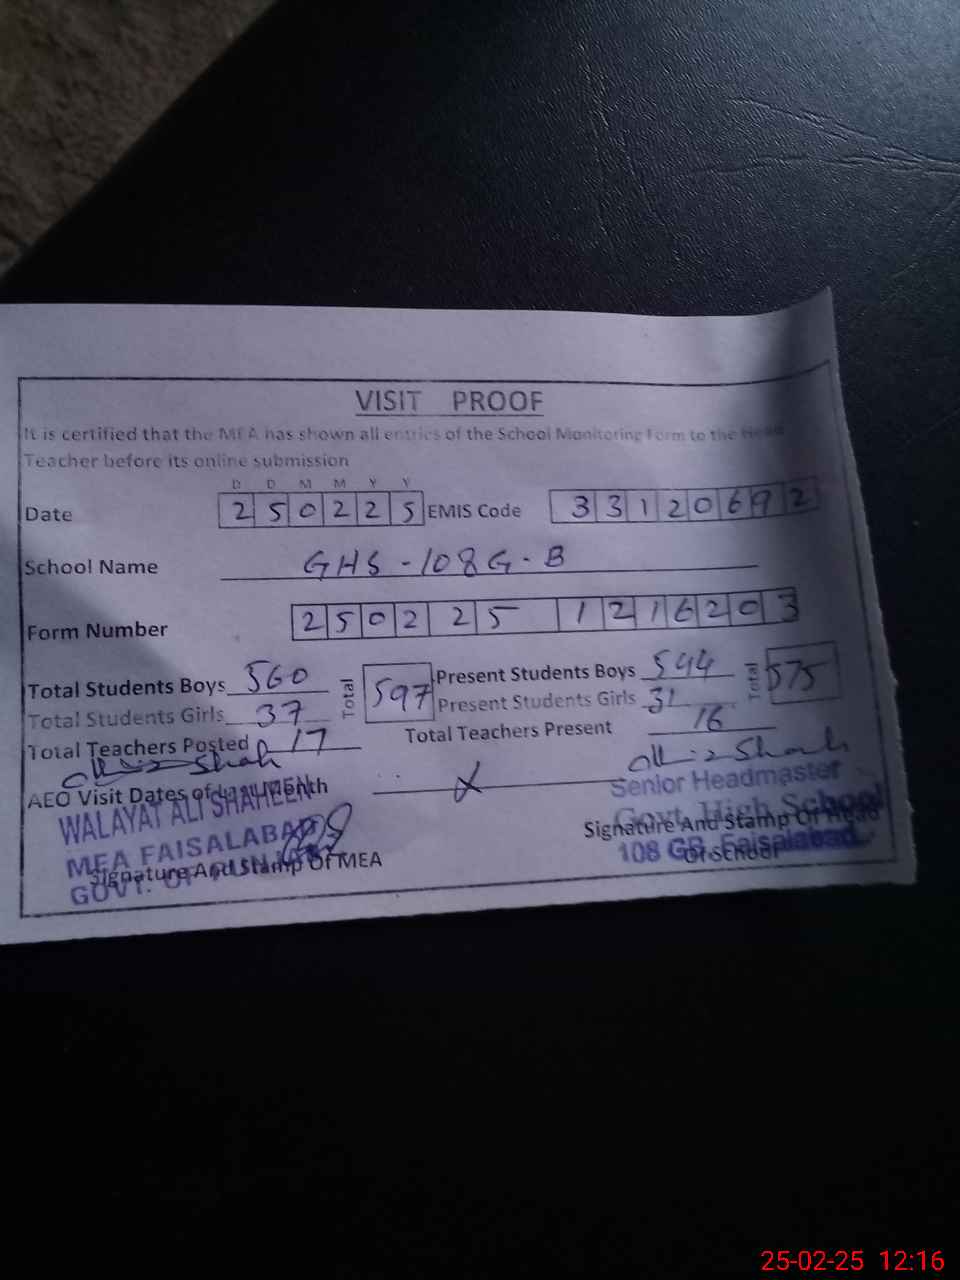 VISIT PROOF
It is certified that the MEA has shown all entries of the School Monitoring Form to the Head
Teacher before its online submission
D D M M Y Y
Date 2 5 0 2 2 5 EMIS Code 3 3 1 2 0 6 9 2
School Name GHS-108 G-B
Form Number 2 5 0 2 2 5 1 2 1 6 2 0 3
Total Students Boys 560 Total 597 Present Students Boys 544 Total 575
Total Students Girls 37 Present Students Girls 31
Total Teachers Posted 17 Total Teachers Present 16
AEO Visit Dates of Last Month
WALAYAT ALI SHAHEEN
MEA FAISALABAD
GOVT. OF
Signature And Stamp Of MEA
Senior Headmaster
Govt. High School
108 GB, Faisalabad
Signature And Stamp Of Head
Of School
25-02-25 12:16